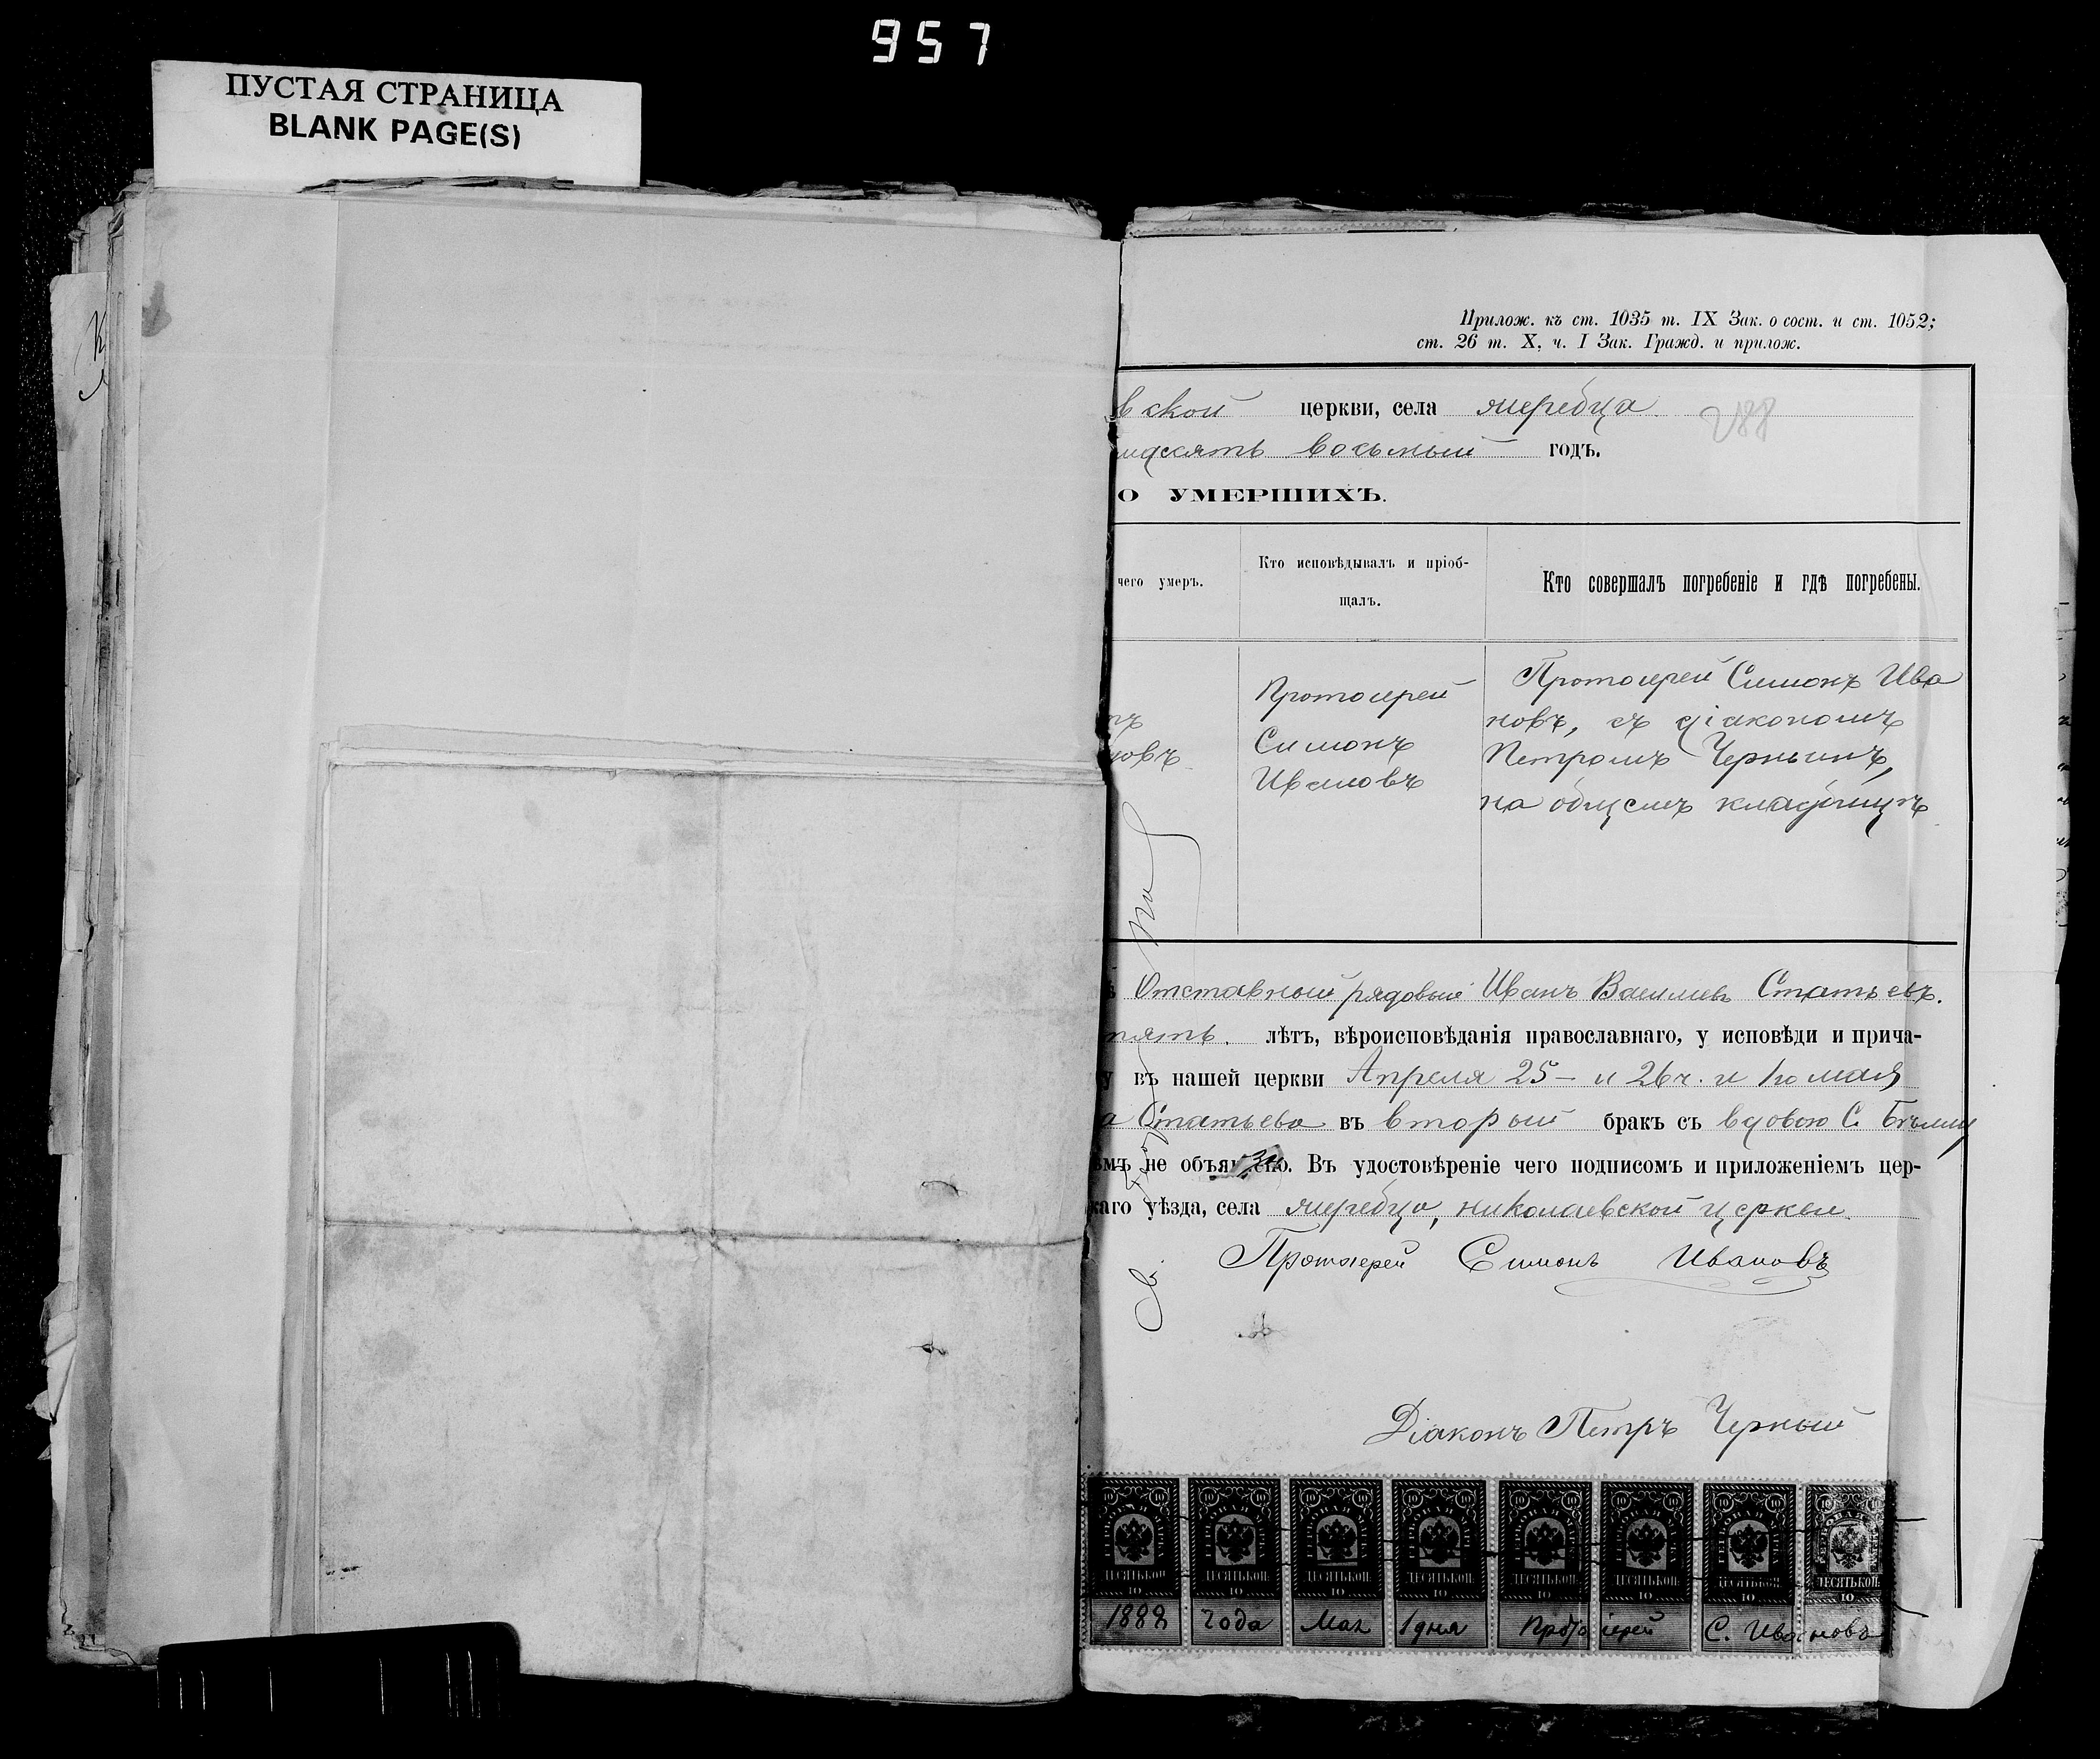 957
ПУСТАЯ СТРАНИЦА
BLANK PAGE(S)
Прилож. къ ст. 1035 т. IX Зак. о сост. и ст. 1052;
ст. 26 т. X, ч. I Зак. Гражд. и прилож.
вской церкви, села Жеребца
288
десятъ восьмый годъ.
О УМЕРШИХЪ.
чего умеръ.
Кто исповѣдывалъ и пріоб-
щалъ.
Кто совершалъ погребеніе и гдѣ погребены.
Протоіерей
Симонъ
Ивановъ
Протоіерей Симонъ Ива
новъ, съ діакономъ
Петромъ Чернымъ,
на общемъ кладбищѣ
Отставный рядовый Иванъ Васильевъ Статьевъ.
пять. лѣтъ, вѣроисповѣданія православнаго, у исповѣди и прича-
у въ нашей церкви Апреля 25 – и 26 ч. и 1го мая
а Статьева въ вторый бракъ съ вдовою С.
мъ не объявлено. Въ удостовѣреніе чего подписомъ и приложеніемъ цер-
каго уѣзда, села Жеребца, Николаевской церкви
Протоіерей Симонъ Ивановъ
Діаконъ Петръ Черный
ГЕРБОВАЯ МАРКА
ДЕСЯТЬ КОП.
10
1888 года Мая 1 дня Протоіерей С. Ивановъ